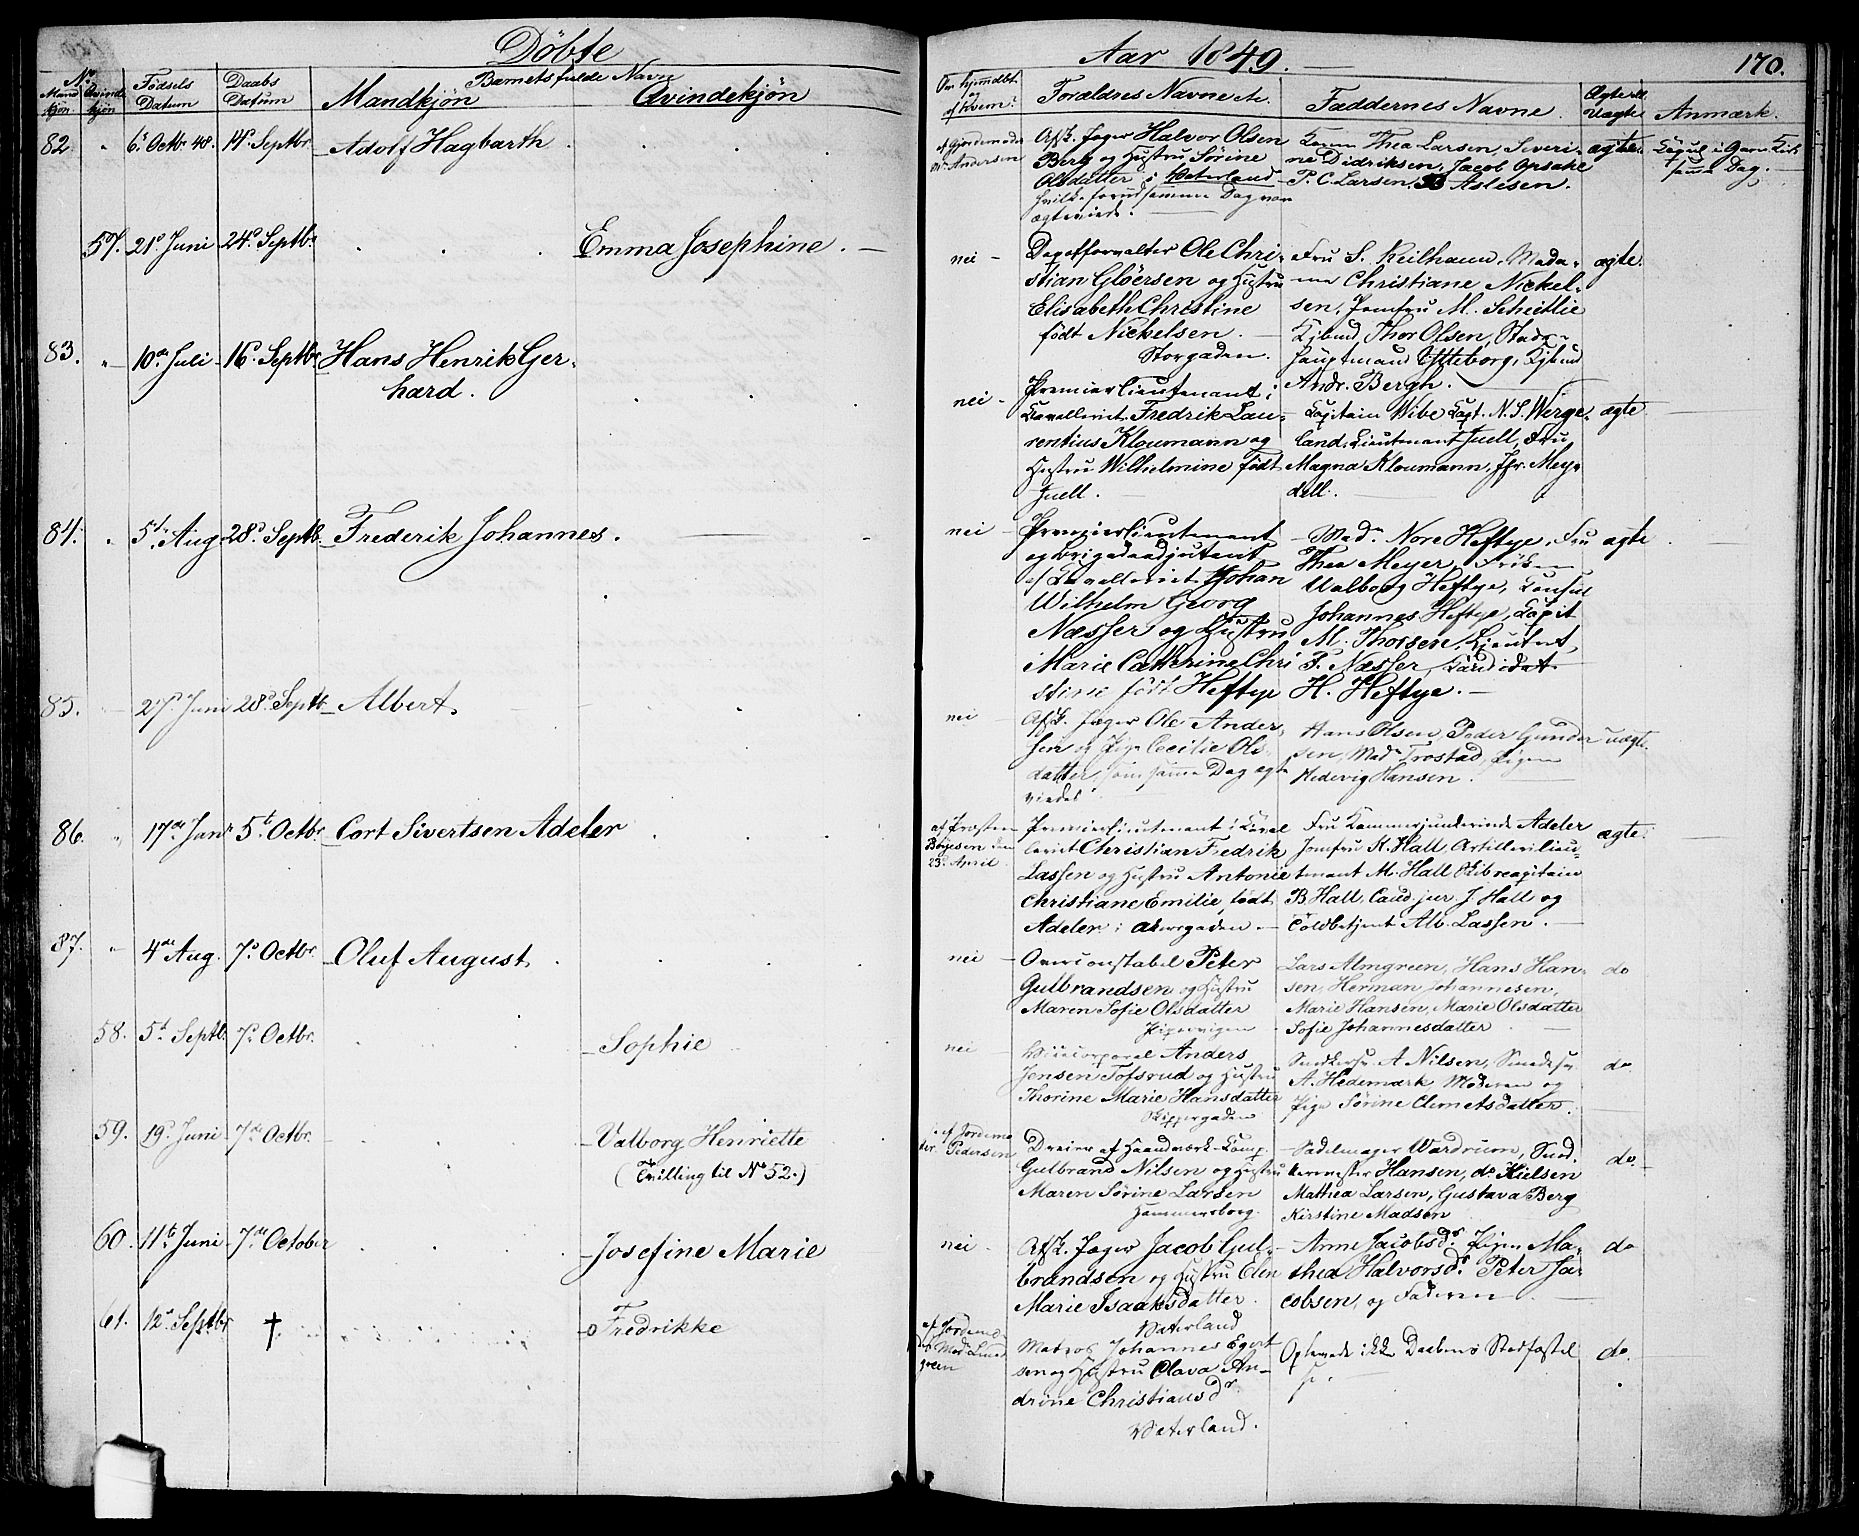 Döbte
Aar 1849.
170.
No
Mandkjön
Qvindekjön
Fødsels Datum
Daabs Datum
Barnets fulde Navn
Mandkjön
Qvindekjön
Om hjemdöbt og af hvem?
Forældres Navne etc.
Faddernes Navne.
Ægte ell. Uægte
Anmærk.
82. " 6t Octbr 48. 14d Septbr. Adolf Hagbarth
Afsk. Jæger Halvor Olsen
Berg og Hustru Sørine
Olsdatter i Vaterland
hvilke forud samme Dag var
ægteviede.
Karen Thea Larsen, Severi-
ne Didriksen, Jacob Opsahl
P. C. Larsen, B Aslesen.
ægte.
57. 21d Juni 24d Septbr. Emma Josephine.
nei
Depotforvalter Ole Chri-
stian Gløersen og Hustru
Elisabeth Christine
født Nickelsen.
Storgaden.
Fru S. Keilhaun, Mada-
me Christiane Nickel-
sen, Jomfru M. Scheitlie
Kjbmd. Thor Olsen, Stads-
hauptmand Ytteborg, Kjbmd
Andr. Bergh.
ægte.
83. " 10de Juli 16d Septbr Hans Henrik Ger-
hard.
nei
Premierlieutenant i
Cavalleriet Fredrik Lau-
rentius Kloumann og
Hustru Wilhelmine født
Juell.
Capitain Wibe Capt. N. S. Werge-
land, Lieutenant Juell, Fru
Magna Kloumann, Jfr. Mey-
dell.
ægte
84. " 5t Aug. 28d Septb. Frederik Johannes.
nei
Premierlieutenant
og Brigadeadjutant
af Cavalleriet Johan
Wilhelm Georg
Næsser og Hustru
Marie Catherine Chri
stine født Heftye
Madm Nore Heftye, Fru
Thea Meyer, Frøken
Valborg Heftye, Consul
Johannes Heftye, Capit
M. Thorsen, Lieutnt,
P. Næsser, Candidat
H. Heftye.
ægte
85. 27d Juni 28d Septb. Albert.
nei
Afsk. Jæger Ole Ander-
sen og Pige Cecilie Ols-
datter, som samme Dag ægte
viedes.
Hans Olsen, Peder Gunder
sen, Madm Trostad, Pigen
Hedevig Hansen.
uægte.
86. " 17de Janr 5t Octbr. Cort Sivertsen Adeler
af Præsten
Bøyesen den
23d April
Premierlieutenant i Caval
leriet Christian Fredrik
Lassen og Hustru Antonie
Christiane Emilie, født
Adeler i Akersgaden.
Fru Kammerjunkerinde Adeler
Jomfru K. Hall, Artillerilieu-
tenant M. Hall
B. Hall, Cand. jur J. Hall og
Toldbetjent Alb. Lassen.
ægte.
87. " 4de Aug. 7d Octbr. Oluf August
nei
Overconstabel Peter
Gulbrandsen og Hustru
Maren Sofie Olsdatter
Pipervigen
Lars Almgreen, Hans Han-
sen, Herman Johannesen,
Marie Hansen, Marie Olsdatter
Sofie Johannesdatter
do
58. 5t Septb. 7d Octbr. Sophie
nei
Vicecorporal Anders
Jensen Tofsrud og Hustru
Thorine Marie Hansdatter
Skippergaden
Snedkersv. A Nilsen, Smedesv
A. Hedemark, Moderen og
Pige Sørine Clemetsdatter.
do.
59. 19d Juni 7de Octbr. Valborg Henriette
(Tvilling til No 52.)
af Jordemo
der Pedersen
Dreier af Haandværk-Comp.
Gulbrand Nilsen og Hustru
Maren Sørine Larsen
Hammersborg.
Sadelmager Wardrum, Sned-
kermester Hansen, do Nielsen
Mathea Larsen, Gustava Berg
Kirstine Madsen
do.
60. 11te Juni 7de October Josefine Marie
nei
Afsk. Jæger Jacob Gul-
brandsen og Hustru Elen
Marie Isaaksdatter.
Vaterland
Anne Jacobsdr. Pigen Ma-
thea Halvorsdr. Peter Ja-
cobsen, og Faderen
do
61. 12t Septbr † Fredrikke
af Jordemd.
Mad. Lund
green
Matros Johannes Egert
sen og Hustru Olava An-
drine Christiansdr.
Vaterland.
Oplevede ikke Daabens Stadfæstel
se.
do.